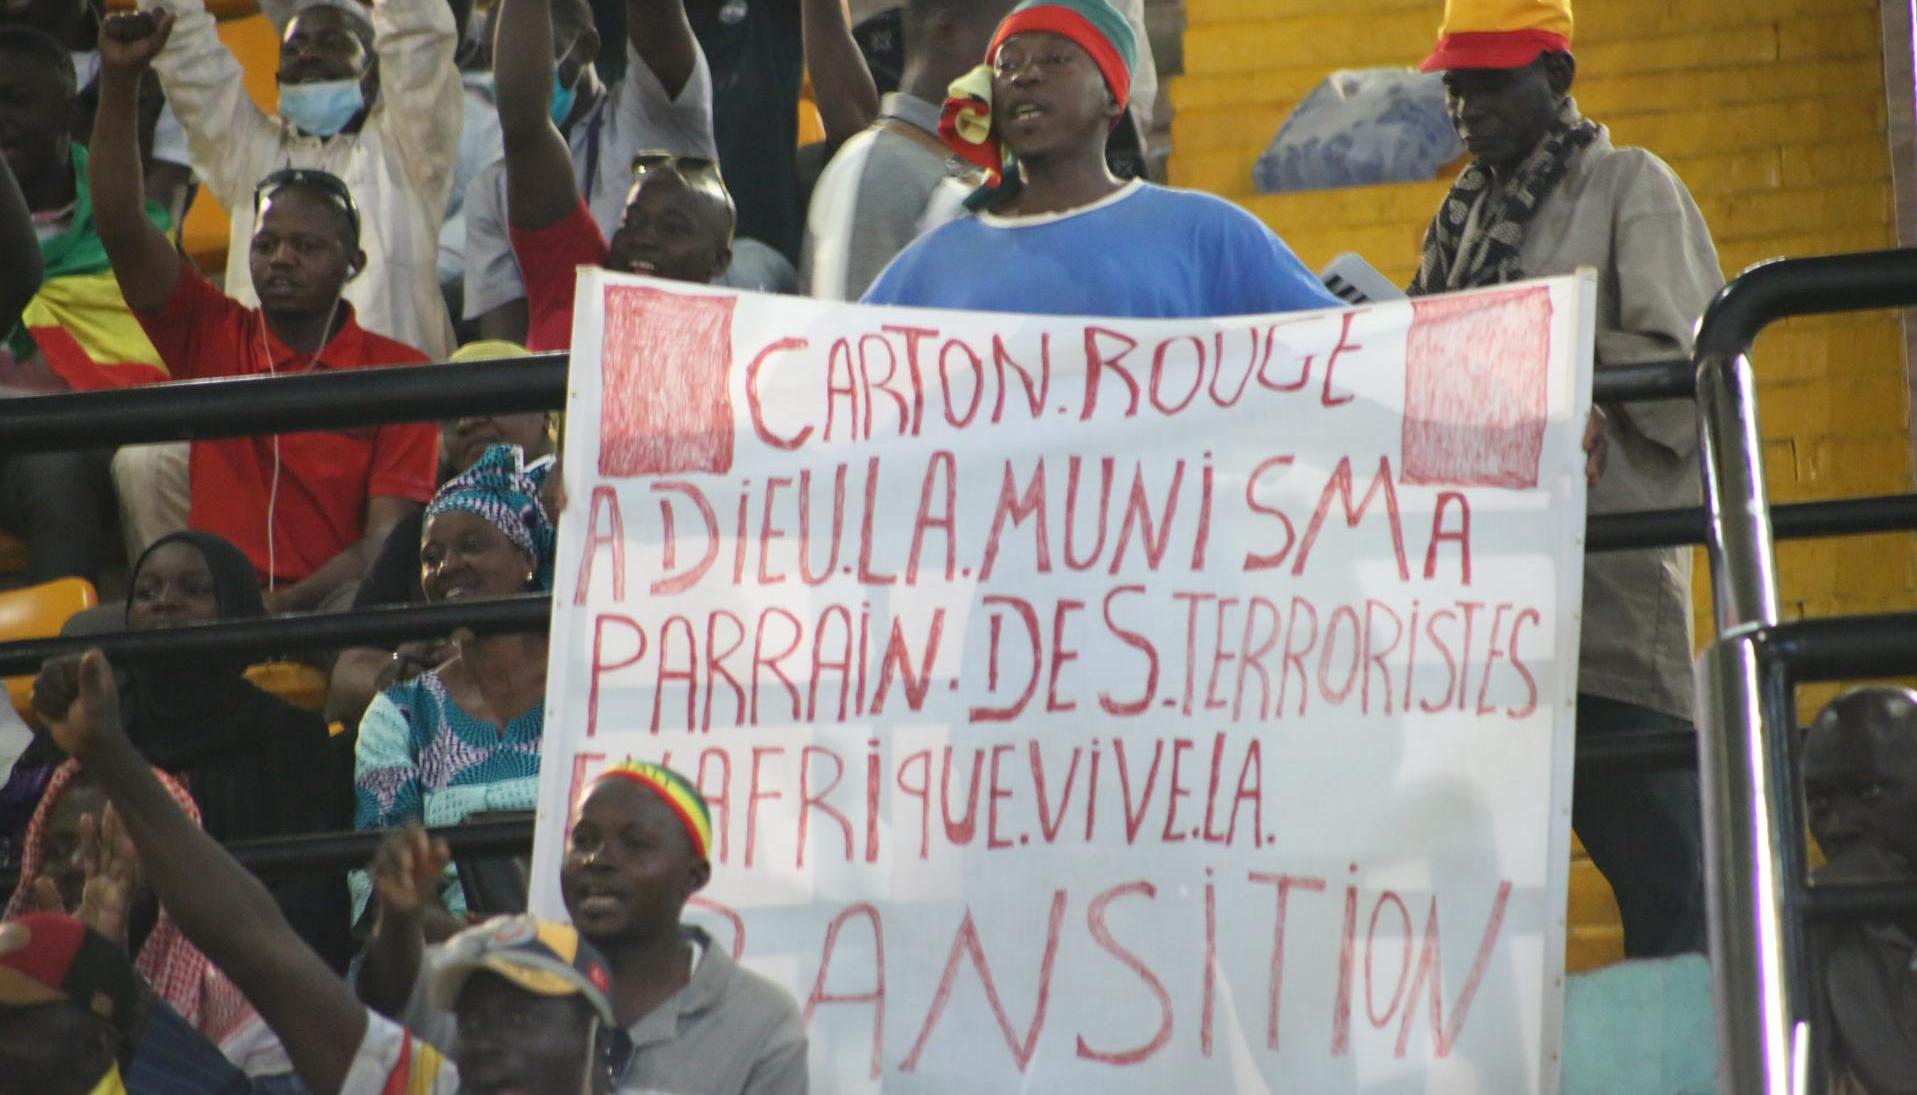 CARTON.ROUGE
ADiEU.LA.MUNiSMA
PARRAiN.DES.TERRORiSTES
AFRiqUE.ViVE.LA.
RANSiTiON